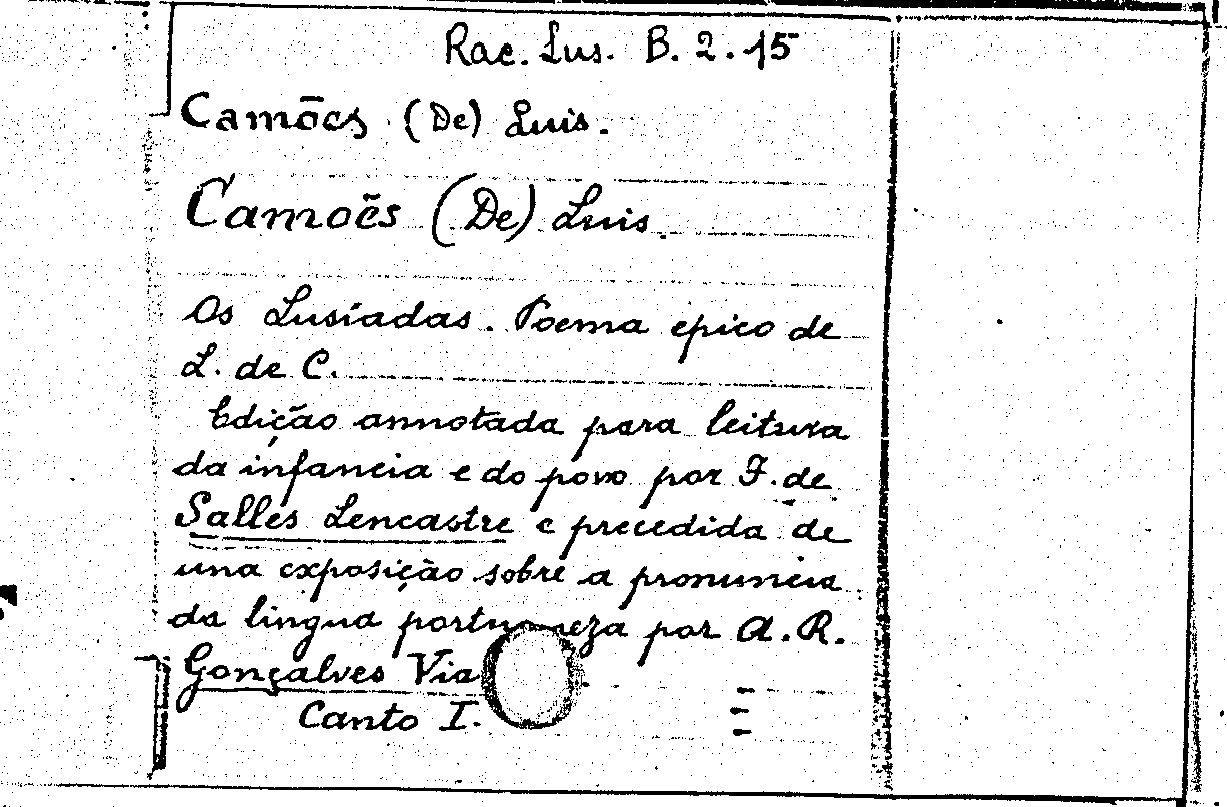 Rac. Lus. B. 2. 15
Camões (De) Luis.
Camoẽs (De) Luis.
Os Lusíadas. Poema epico de
L. de C.
Edição annotada para leitura
da infancia e do povo por F. de
Salles Lencastre e precedida de
una exposição sobre a pronuncia
da lingua portugueza por A. R.
Gonçalves Via
Canto I.